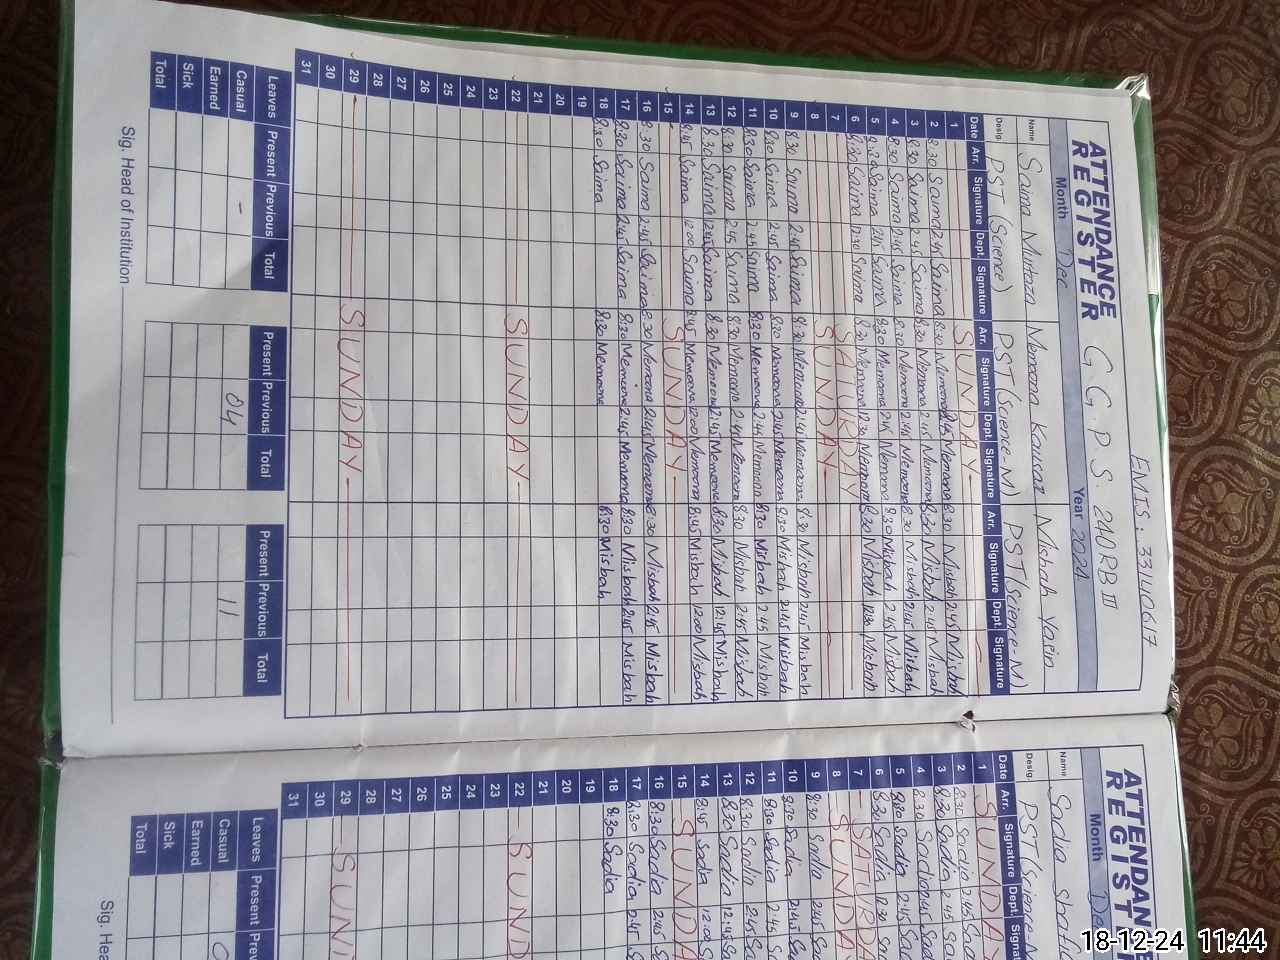 EMIS: 33140617
ATTENDANCE REGISTER G G. P. S. 240 RB III
Month Dec Year 2024
Name Saima Murtaza Memoona Kousar Misbah Yasin
Desig. PST (Science) PST (Science-M) PST (Science-M)
Date Arr. Signature Dept. Signature Arr. Signature Dept. Signature Arr. Signature Dept. Signature
1 SUNDAY
2 8:30 Saima 2:45 Saima 8:30 Memoona 2:45 Memoona 8:30 Misbah 2:45 Misbah
3 8:30 Saima 2:45 Saima 8:30 Memoona 2:45 Memoona 8:30 Misbah 2:45 Misbah
4 8:30 Saima 2:45 Saima 8:30 Memoona 2:45 Memoona 8:30 Misbah 2:45 Misbah
5 8:30 Saima 2:45 Saima 8:30 Memoona 2:45 Memoona 8:30 Misbah 2:45 Misbah
6 8:30 Saima 12:30 Saima 8:30 Memoona 12:30 Memoona 8:30 Misbah 12:30 Misbah
7 SATURDAY
8 SUNDAY
9 8:30 Saima 2:45 Saima 8:30 Memoona 2:45 Memoona 8:30 Misbah 2:45 Misbah
10 8:30 Saima 2:45 Saima 8:30 Memoona 2:45 Memoona 8:30 Misbah 2:45 Misbah
11 8:30 Saima 2:45 Saima 8:30 Memoona 2:45 Memoona 8:30 Misbah 2:45 Misbah
12 8:30 Saima 2:45 Saima 8:30 Memoona 2:45 Memoona 8:30 Misbah 2:45 Misbah
13 8:30 Saima 12:45 Saima 8:30 Memoona 12:45 Memoona 8:30 Misbah 12:45 Misbah
14 8:45 Saima 12:00 Saima 8:45 Memoona 12:00 Memoona 8:45 Misbah 12:00 Misbah
15 SUNDAY
16 8:30 Saima 2:45 Saima 8:30 Memoona 2:45 Memoona 8:30 Misbah 2:45 Misbah
17 8:30 Saima 2:45 Saima 8:30 Memoona 2:45 Memoona 8:30 Misbah 2:45 Misbah
18 8:30 Saima 8:30 Memoona 8:30 Misbah
19
20
21
22 SUNDAY
23
24
25
26
27
28
29 SUNDAY
30
31
Leaves Present Previous Total Present Previous Total Present Previous Total
Casual - 04 11
Earned
Sick
Total
Sig. Head of Institution
ATTENDANCE
REGIST
Month De
Name Sadia
Desig. PST (Science-M
Date Arr. Signature Dept. Signat
1 SUNDA
2 8:30 Sadia 2:45
3 8:30 Sadia 2:45
4 8:30 Sadia 2:45
5 8:30 Sadia 2:45
6 8:30 Sadia 12:30
7 SATURDA
8 SUNDA
9 8:30 Sadia 2:45
10 8:30 Sadia 2:45
11 8:30 Sadia 2:45
12 8:30 Sadia 2:45
13 8:30 Sadia 12:45
14 8:45 Sadia 12:00
15 SUNDA
16 8:30 Sadia 2:45
17 8:30 Sadia 2:45
18 8:30 Sadia
19
20
21
22 SUND
23
24
25
26
27
28
29 SUN
30
31
Leaves Present Prev
Casual
Earned
Sick
Total
Sig. Hea
18-12-24 11:44